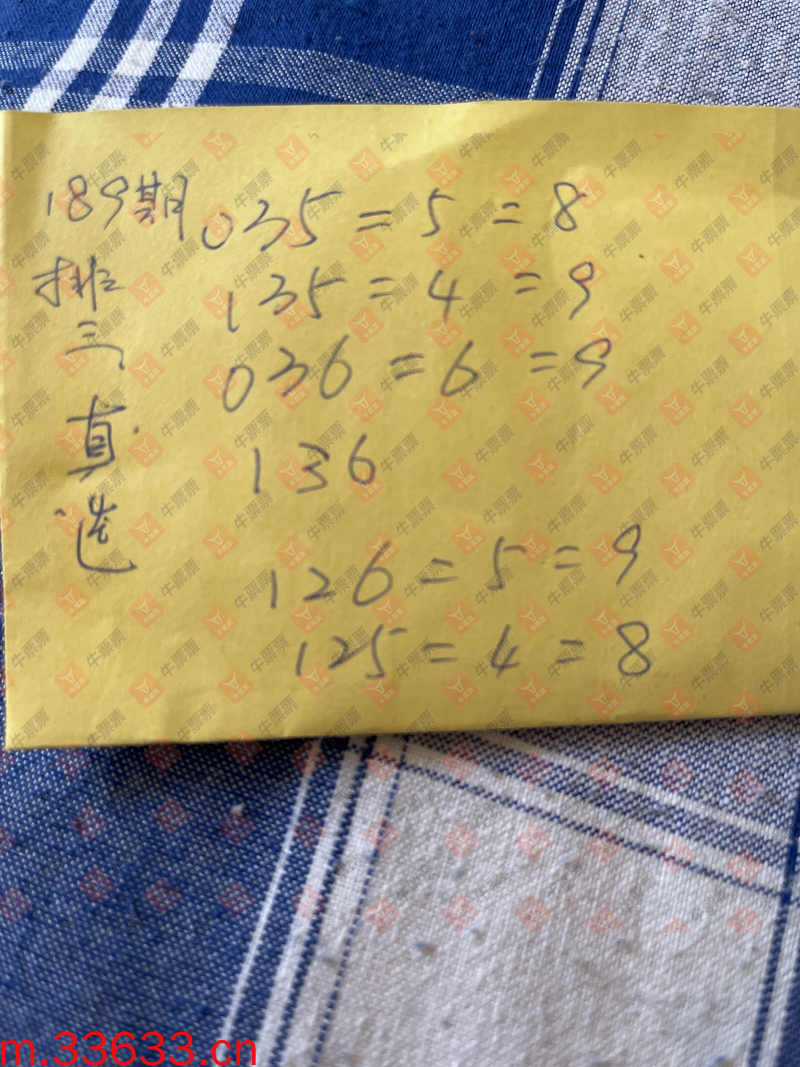 189期 035=5=8
排 135=4=9
三 036=6=9
直 136
选 126=5=9
125=4=8
牛票票
m.33633.cn